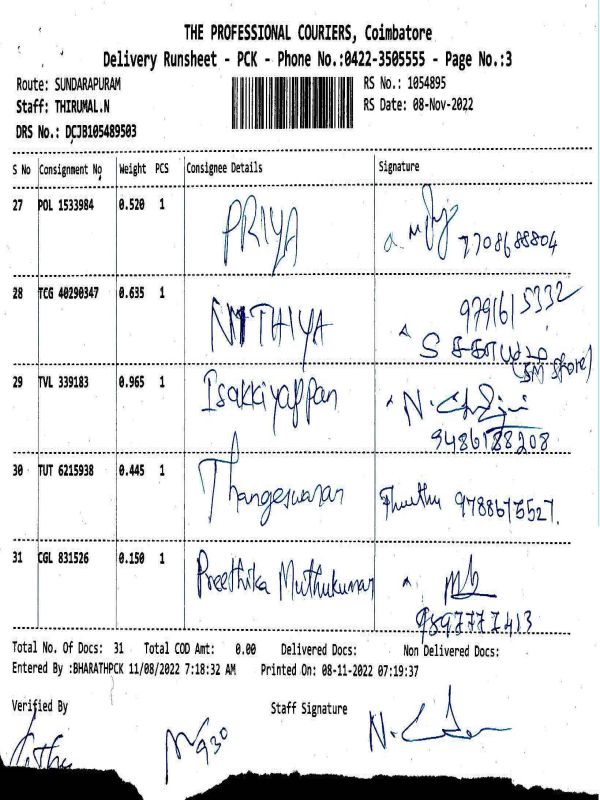 THE PROFESSIONAL COURIERS, Coimbatore
Delivery Runsheet - PCK - Phone No.:0422-3505555 - Page No.:3
Route: SUNDARAPURAM RS No.: 1054895
Staff: THIRUMAL.N RS Date: 08-Nov-2022
DRS No.: DCJB105489503
S No Consignment No Weight PCS Consignee Details Signature
27 POL 1533984 0.520 1 PRIYA 7708688804
28 TCG 40290347 0.635 1 NITHIYA 9791615332
S
(SM Store)
29 TVL 339183 0.965 1 Isakkiyappan
9486188208
30 TUT 6215938 0.445 1 Thangeswaran 9788675527.
31 CGL 831526 0.150 1 Preethika Muthukumar
9597777413
Total No. Of Docs: 31 Total COD Amt: 0.00 Delivered Docs: Non Delivered Docs:
Entered By :BHARATHPCK 11/08/2022 7:18:32 AM Printed On: 08-11-2022 07:19:37
Verified By Staff Signature
930